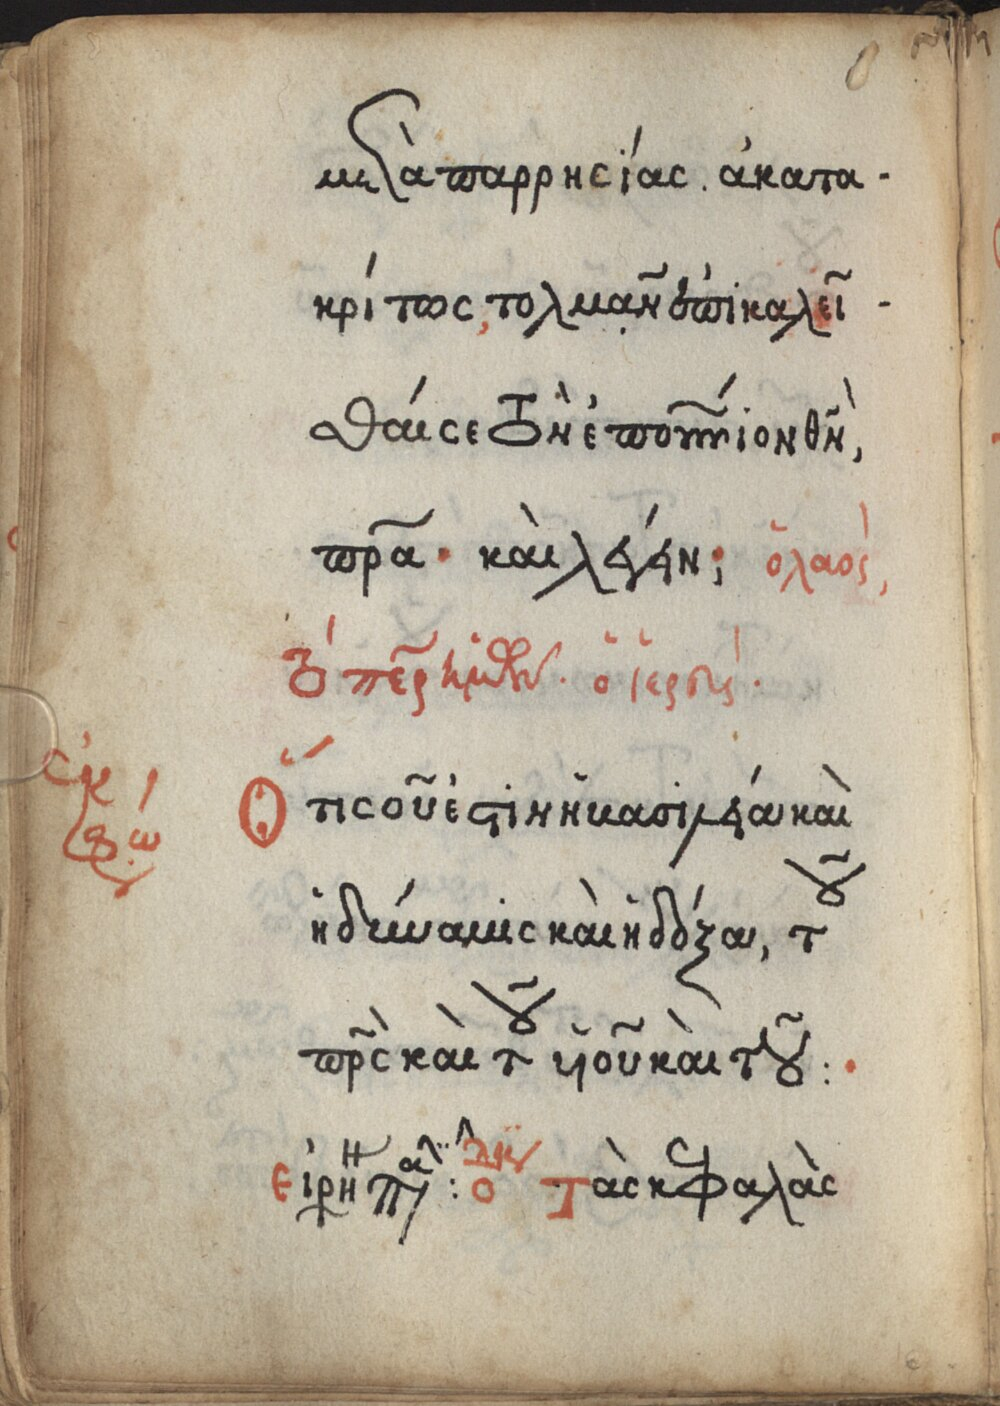 μετὰ παρρησίας. ἀκατα-
κρίτως, τολμᾶν ἐπικαλεῖ-
σθαί σε τὸν ἐπουράνιον θν̅,
πρα̅· καὶ λέγειν; ὁ λαός,
Ὁ ἱερεύς·
ἐκφώ
Ὅτι σοῦ ἐστιν ἡ βασιλεία καὶ
ἡ δύναμις καὶ ἡ δόξα, τοῦ
πρ̅ς καὶ τοῦ υἱοῦ καὶ τοῦ:·
εἰρήνη πᾶσι: ὁ Τὰς κεφαλὰς